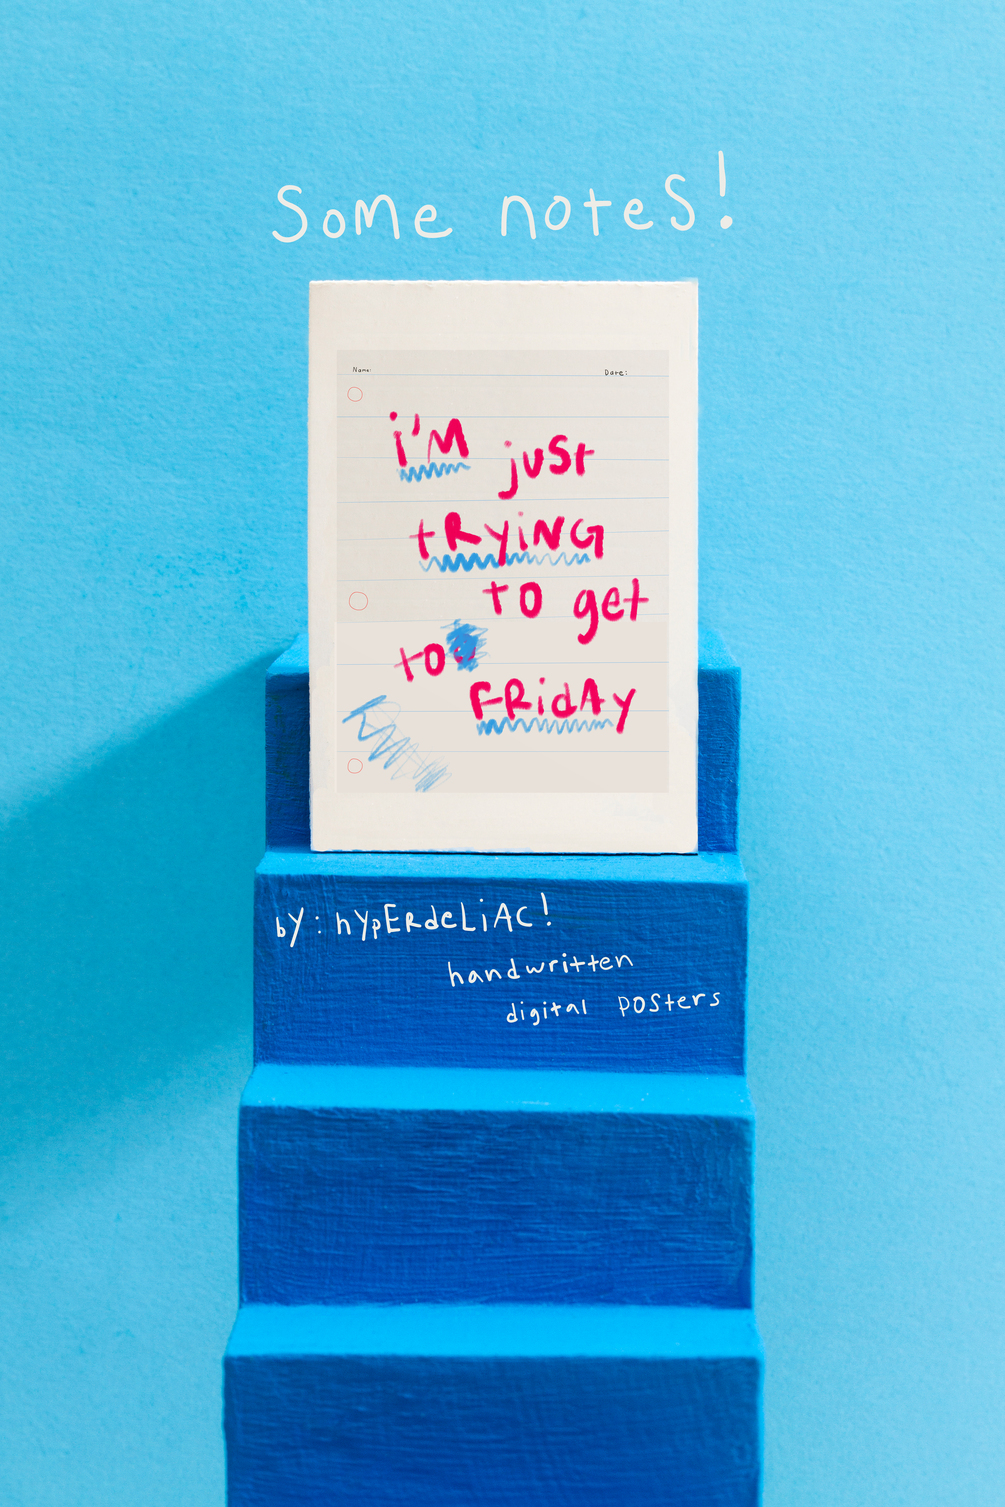 Some notes!
Name: Date:
i'M just
tRyiNG
to get
to
FRidAy
by: hypERdeLiAC!
handwritten
digital posters